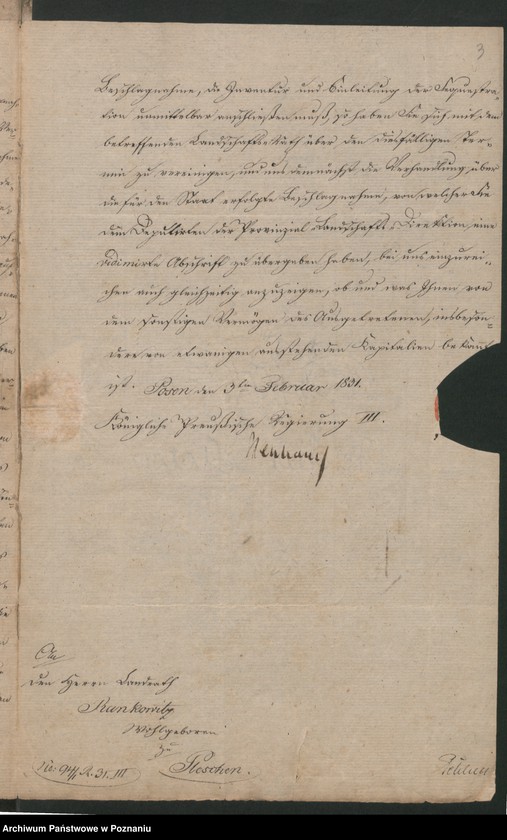 3
Beschlagnahme, die Inventur und Einleitung der Sequestra-
tion unmittelbar anschließen muß, so haben Sie sich mit dem
betreffenden Landschafts-Rath über den diesfälligen Ter-
min zu vereinigen, und uns demnächst die Verhandlung über
die für den Staat erfolgte Beschlagnahme, von welcher Sie
dem Deputirten der Provinzial Landschafts-Direktion, eine
vidimirte Abschrift zu übergeben haben, bei uns einzurei-
chen auch gleichzeitig anzuzeigen, ob und was Ihnen von
dem sonstigen Vermögen des Ausgetretenen, insbeson-
dere von etwanigen ausstehenden Kapitalien bekannt
ist. Posen den 3ten Februar 1831.
Königliche Preußische Regierung III.
An
den Herrn Landrath
Runkowitz
Wohlgeboren
zu
Pleschen.
No: 94/1 R. 31. III
Archiwum Państwowe w Poznaniu